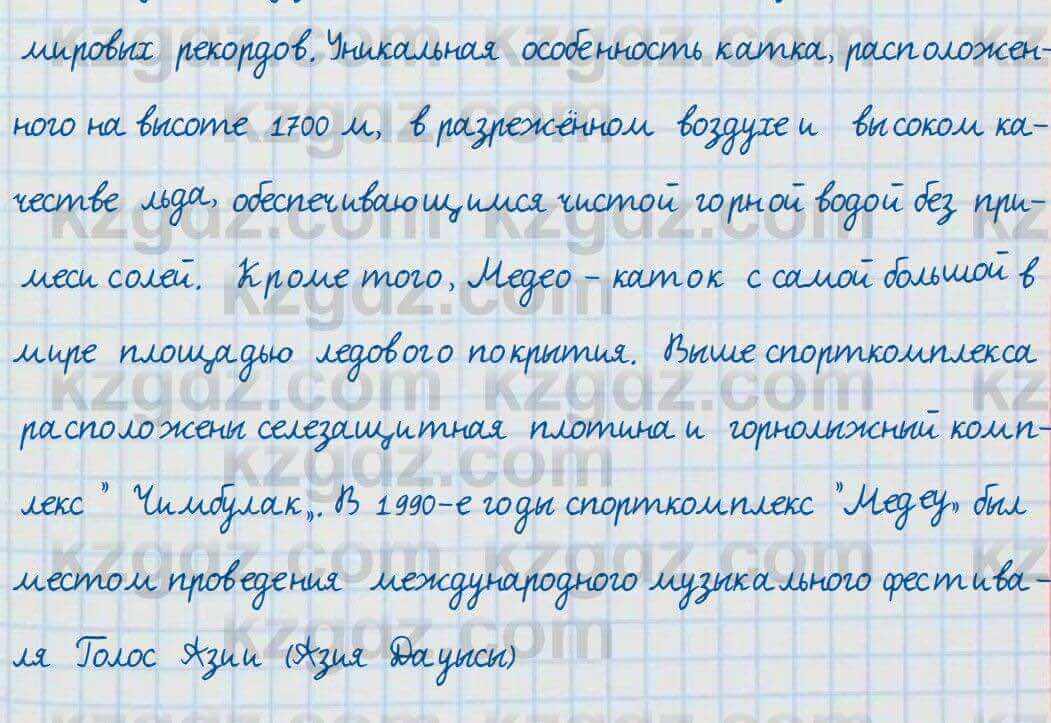 мировых рекордов. Уникальная особенность катка, расположен-
ного на высоте 1700 м, в разрежённом воздухе и высоком ка-
честве льда, обеспечивающимся чистой горной водой без при-
меси солей. Кроме того, Медео - каток с самой большой в
мире площадью ледового покрытия. Выше спорткомплекса
расположены селезащитная плотина и горнолыжный комп-
лекс "Чимбулак". В 1990-е годы спорткомплекс "Медеу" был
местом проведения международного музыкального фестива-
ля Голос Азии (Азия Дауысы)